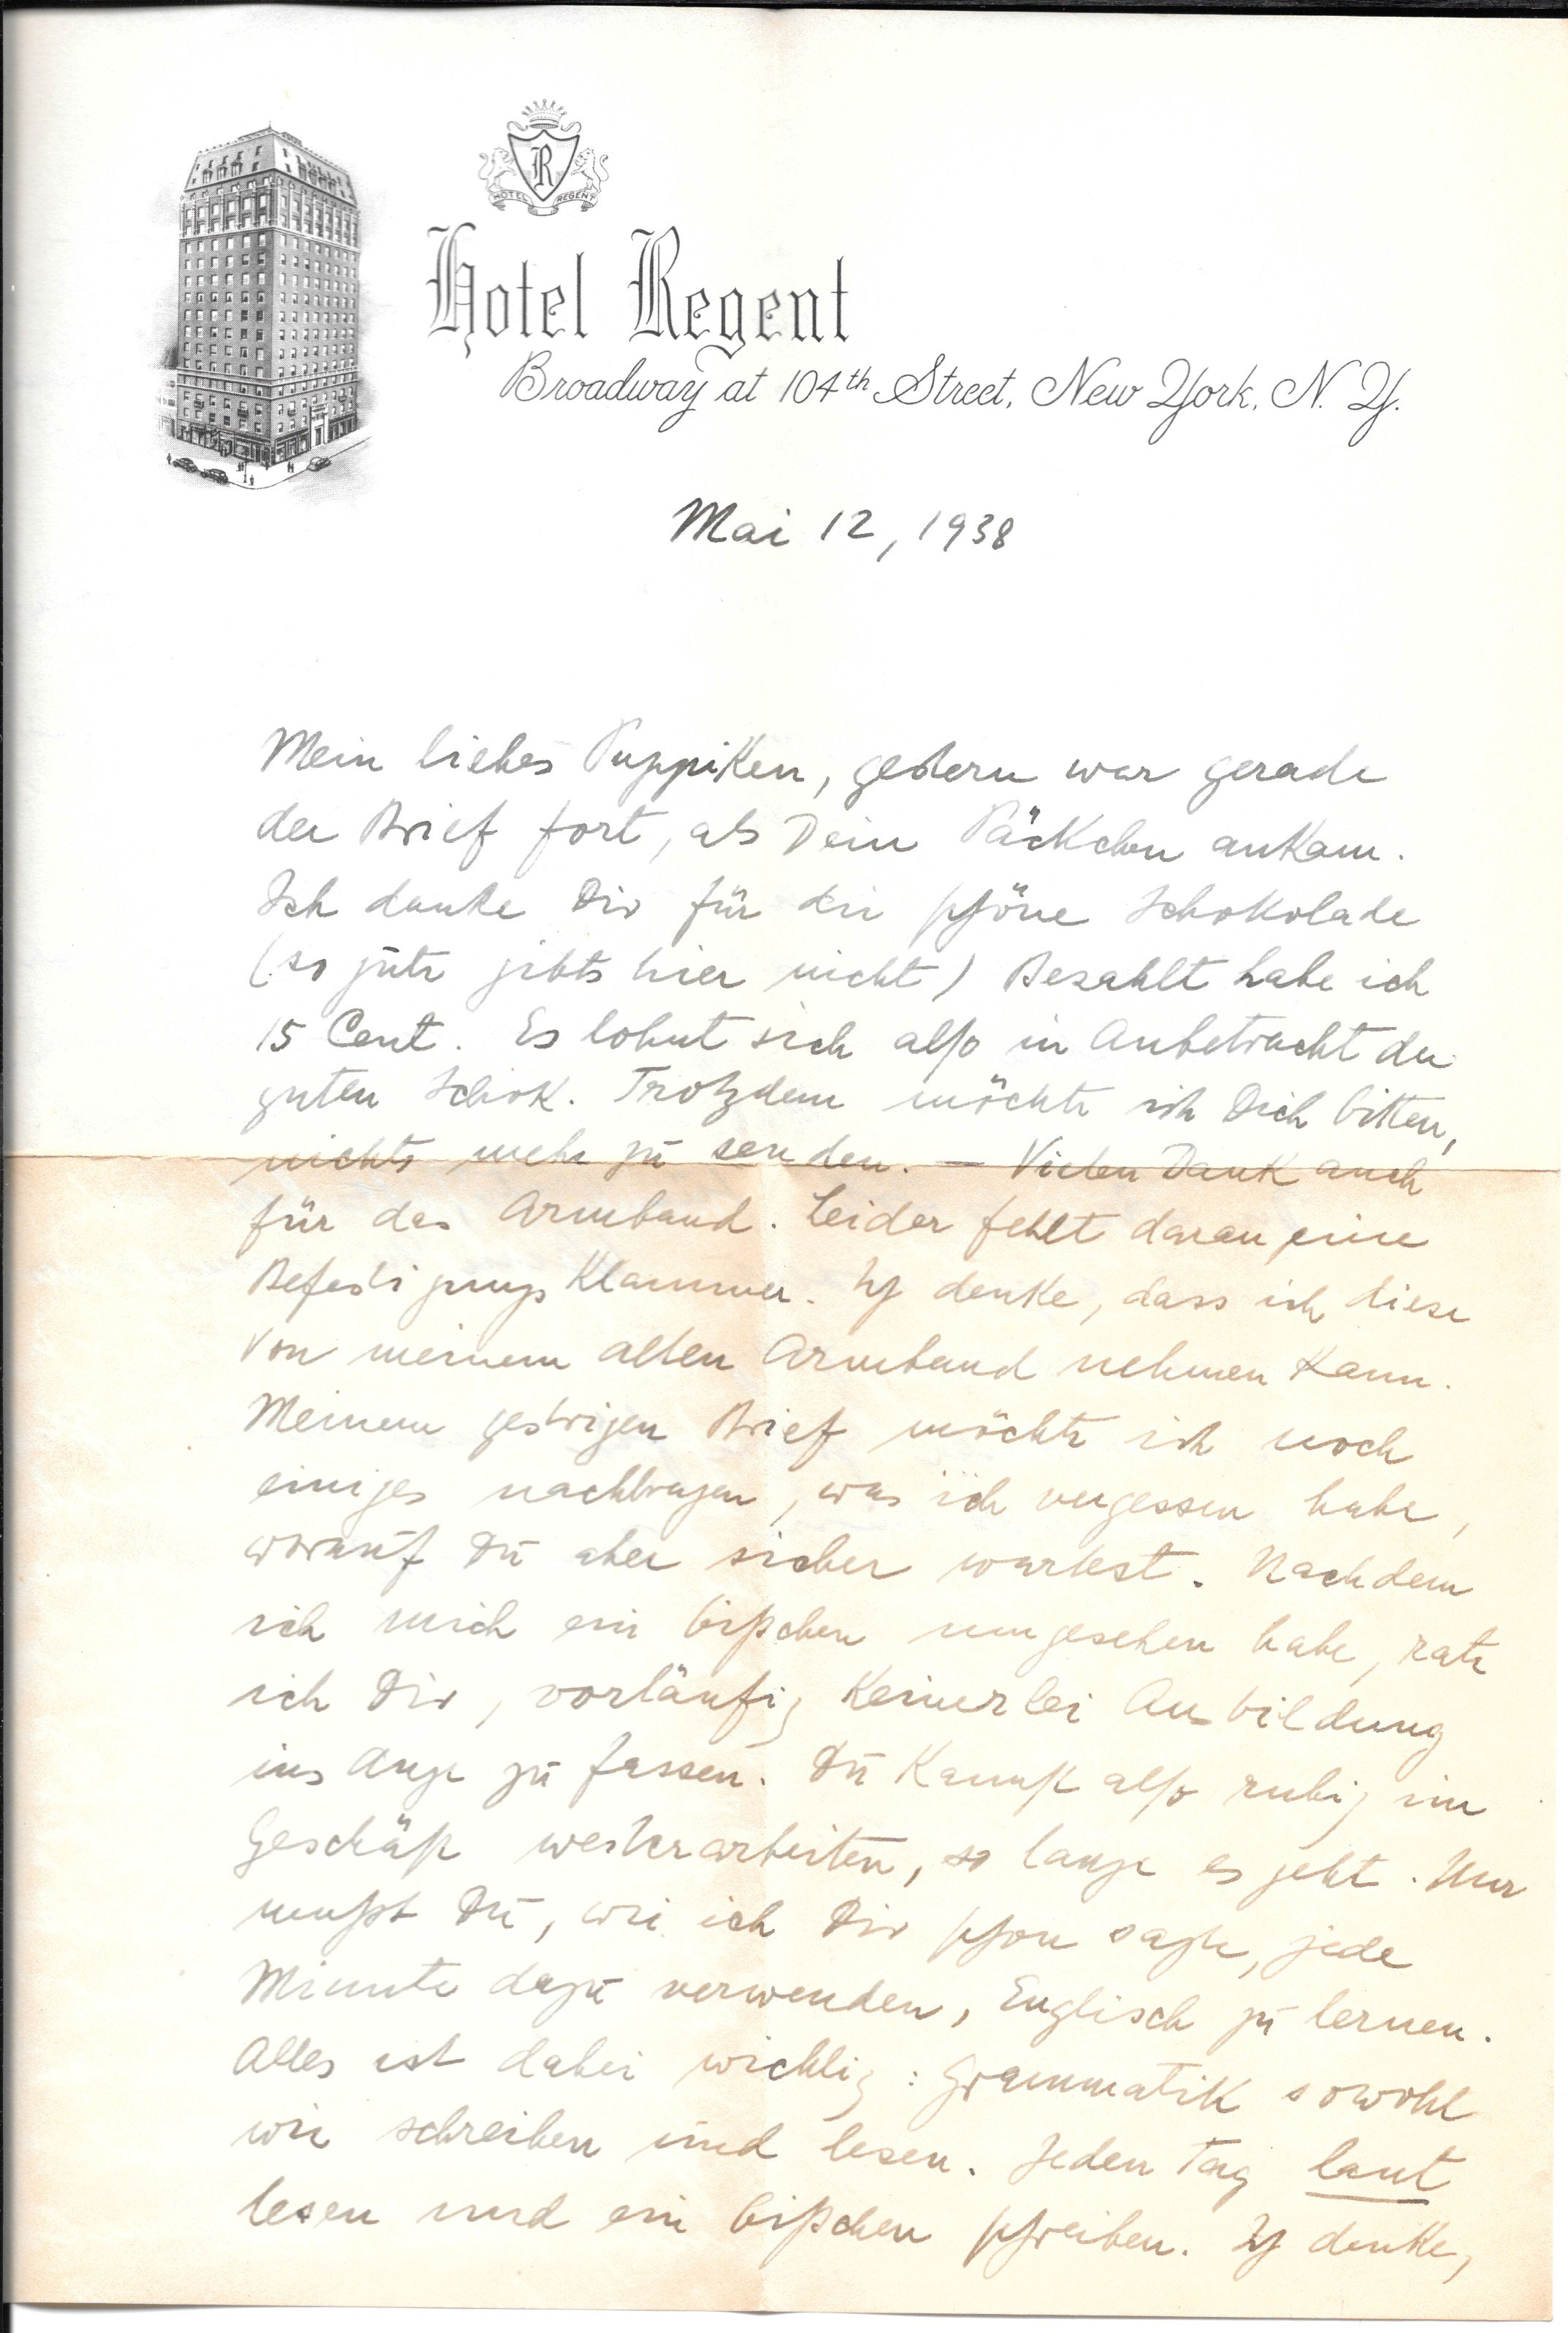 R
HOTEL REGENT
Hotel Regent
Broadway at 104th Street, New York, N. Y.
Mai 12, 1938
Mein liebes Puppiken, gestern war gerade
der Brief fort, als Dein Päckchen ankam.
Ich danke Dir für die schöne Schokolade
(so gute gibts hier nicht) Bezahlt habe ich
15 Cent. Es lohnt sich also in Anbetracht der
guten Schok. Trotzdem möchte ich Dich bitten,
nichts mehr zu senden. — Vielen Dank auch
für das Armband. Leider fehlt daran eine
Befestigungsklammer. Ich denke, dass ich diese
von meinem alten Armband nehmen kann.
Meinem gestrigen Brief möchte ich noch
einiges nachtragen, was ich vergessen habe,
worauf Du aber sicher wartest. Nachdem
ich mich ein bißchen umgesehen habe, rate
ich Dir, vorläufig keinerlei Ausbildung
ins Auge zu fassen. Du kannst also ruhig im
Geschäft weiterarbeiten, so lange es geht. Nur
mußt Du, wie ich Dir schon sagte, jede
Minute dazu verwenden, Englisch zu lernen.
Alles ist dabei wichtig: Grammatik sowohl
wie schreiben und lesen. Jeden Tag laut
lesen und ein bißchen schreiben. Ich denke,